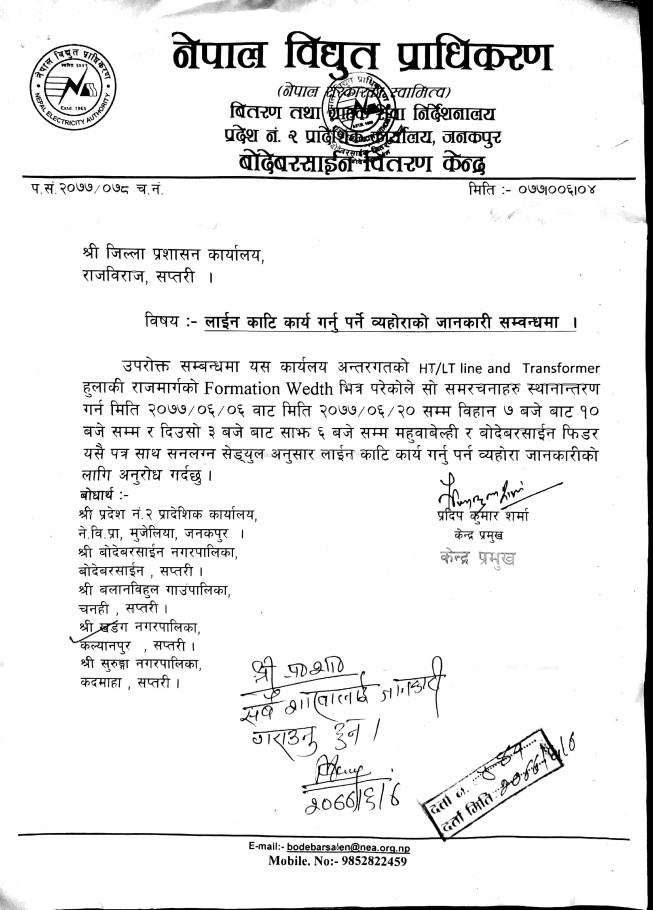 नेपाल विद्युत प्राधिकरण
नेपाल विद्युत प्राधिकरण
NEPAL ELECTRICITY AUTHORITY
Estd. 1985
(नेपाल सरकारको स्वामित्व)
वितरण तथा ग्राहक सेवा निर्देशनालय
प्रदेश नं. २ प्रादेशिक कार्यालय, जनकपुर
बोदेबरसाईन वितरण केन्द्र
प.सं.२०७७/०७८ च.नं.
मिति :- ०७७।००६।०४
श्री जिल्ला प्रशासन कार्यालय,
राजविराज, सप्तरी ।
विषय :- लाईन काटि कार्य गर्नु पर्ने व्यहोराको जानकारी सम्वन्धमा ।
उपरोक्त सम्बन्धमा यस कार्यलय अन्तरगतको HT/LT line and Transformer
हुलाकी राजमार्गको Formation Wedth भित्र परेकोले सो समरचनाहरु स्थानान्तरण
गर्न मिति २०७७/०६/०६ वाट मिति २०७७/०६/२० सम्म विहान ७ बजे बाट १०
बजे सम्म र दिउसो ३ बजे बाट साझ ६ बजे सम्म महुवाबेल्ही र बोदेबरसाईन फिडर
यसै पत्र साथ सनलग्न सेड्युल अनुसार लाईन काटि कार्य गर्नु पर्न व्यहोरा जानकारीको
लागि अनुरोध गर्दछु ।
बोधार्थ :-
श्री प्रदेश नं.२ प्रादेशिक कार्यालय,
ने.वि.प्रा, मुजेलिया, जनकपुर ।
श्री बोदेबरसाईन नगरपालिका,
बोदेबरसाईन , सप्तरी ।
श्री बलानविहुल गाउंपालिका,
चनही , सप्तरी ।
श्री खडग नगरपालिका,
कल्यानपुर , सप्तरी ।
श्री सुरुङ्गा नगरपालिका,
कदमाहा , सप्तरी ।
प्रदिप कुमार शर्मा
केन्द्र प्रमुख
केन्द्र प्रमुख
श्री प्र०शा०
सबै शाखालाई जानकारी
गराउनु हुन ।
२०७७/६/६
दर्ता नं.
दर्ता मिति २०७७/६/६
E-mail:- bodebarsalen@nea.org.np
Mobile. No:- 9852822459